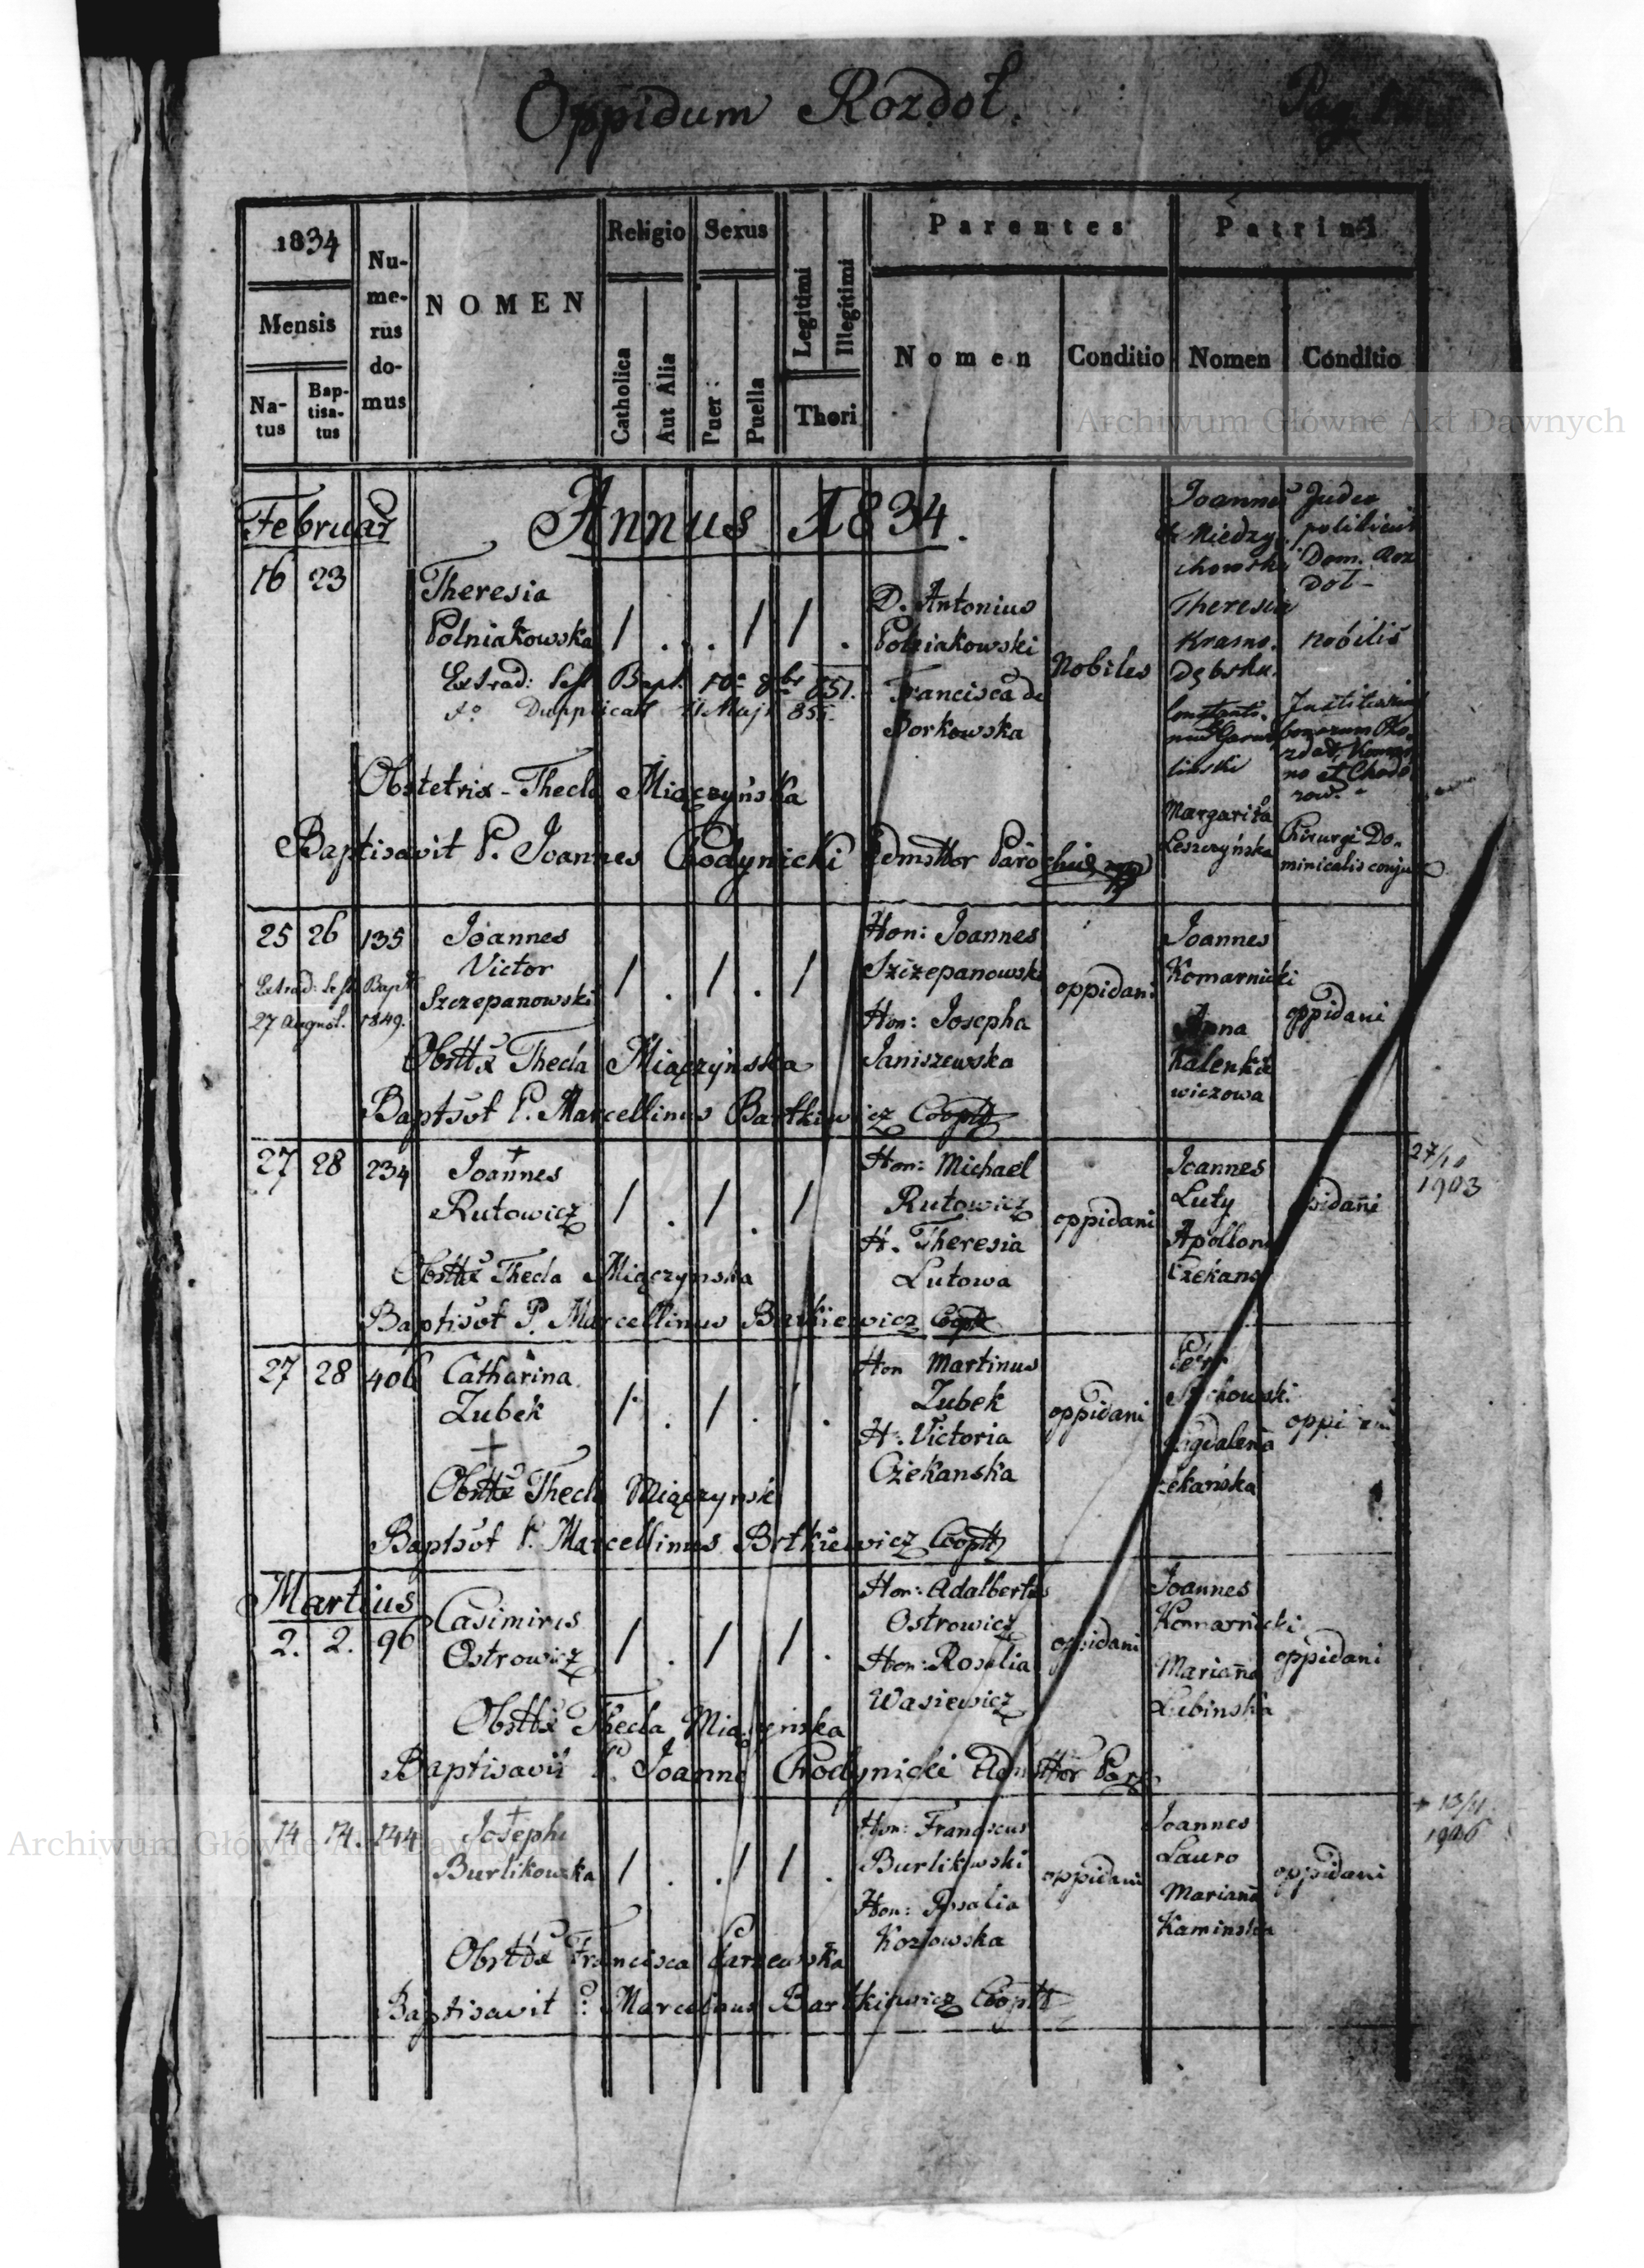 Oppidum Rozdoł.
Pag.
1834
Mensis
Na-
tus
Bap-
tisa-
tus
Nu-
me-
rus
do-
mus
NOMEN
Religio
Catholica
Aut Alia
Sexus
Puer
Puella
Legitimi
Illegitimi
Thori
Parentes
Nomen
Conditio
Patrini
Nomen
Conditio
Archiwum Główne Akt Dawnych
Februar
Annus 1834.
16 23
Theresia
Polniakowska
/ . . / / .
Extrad: Bapt. 10a 8br 851.
Dupplicat 11 Maji 855.
D. Antonius
Polniakowski
Francisca de
Borkowska
Nobiles
Joannes
Miedzy
chowski
Theresia
Krasno.
dębska.
Constanti.
linski
Margarita
Leszczyńska
Judex
Dom. Roz
doł
nobilis
Justitiarius
bonorum
no et Chodo
row.
Chirurgi Do.
minicalis conjux
Obstetrix - Thecla Miączyńska
Baptisavit P. Joannes Chodynicki Admsttor Parochiae
25 26 135
Joannes
Victor
Szczepanowski
/ . / . /
Extrad: Bapt.
27 August. 1849.
Hon: Joannes
Szczepanowski
Hon: Josepha
Janiszewska
oppidani
Joannes
Komarnicki
Anna
Kalenke
wiczowa
oppidani
Obsttx Thecla Miączyńska
Baptsvt P. Marcellinus Bartkiewicz Cooptr
27 28 234
Joannes
Rutowicz
/ . / . /
Hon: Michael
Rutowicz
H. Theresia
Lutowa
oppidani
Joannes
Luty
Apollon
Czekans
pidani
27/10
1903
Obsttx Thecla Miączynska
Baptisvt P. Marcellinus Bartkiewicz Coopt
27 28 406
Catharina
Zubek
/ . / . .
Hon Martinus
Zubek
H. Victoria
Czekanska
oppidani
chowski
gdalena
zekańska
oppi
Obsttx Thecla Miączynsk
Baptsvt P. Marcellinus Brtkiewicz Cooptr
Martius
2. 2. 96
Casimirus
Ostrowicz
/ . / / .
Hon: Adalbertus
Ostrowicz
Hon: Rosalia
Wasiewicz
oppidani
Joannes
Komarnicki
Marianna
Lubinska
oppidani
Obsttx Thecla Miączyńska
Baptisavit P. Joannes Chodynicki Admsttor Par
14 14. 144
Josepha
Burlikowska
/ . . / / .
Hon: Franciscus
Burlikowski
Hon: Rosalia
Kozłowska
oppidani
Joannes
Lauro
Marianna
Kaminska
oppidani
+ 13/11
1906
Archiwum Główne Akt Dawnych
Obsttx Francisca
Baptisavit P. Marcelinus Bartkiewicz Cooptr